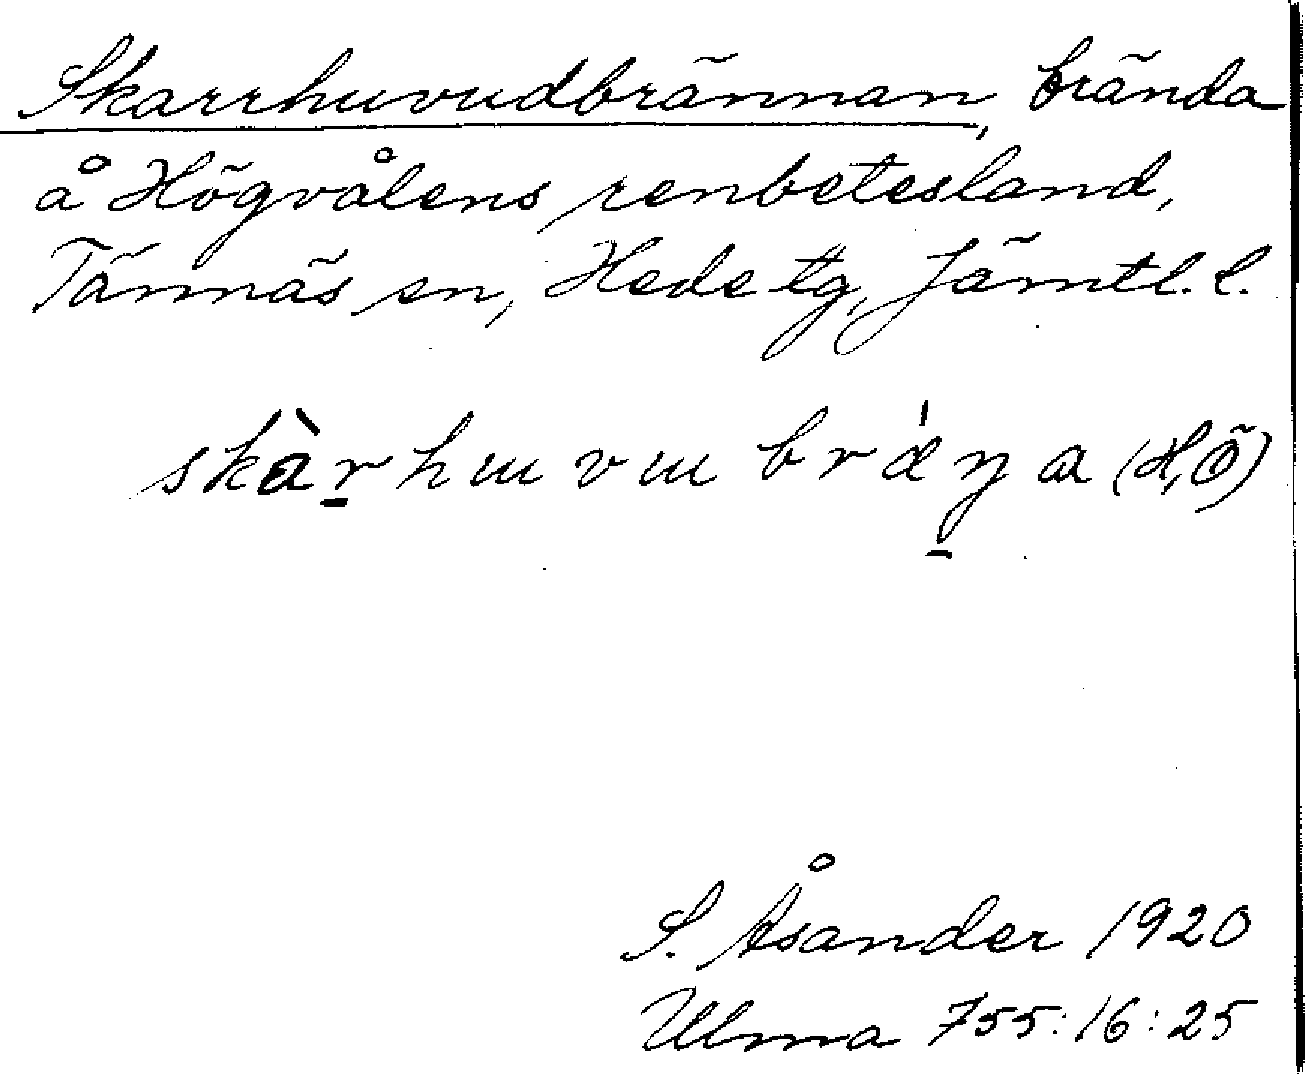 Skarrhuvudbrännan, brända
å Högvålens renbetesland,
Tännäs sn, Hede tg, Jämtl. l.
skàr̠huvubrǽŋ̠a (H,Ö)
S. Åsander 1920
Ulma 755:16:25